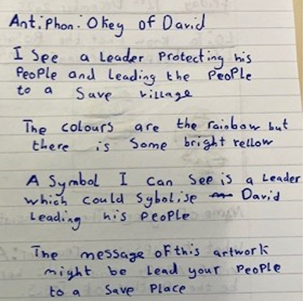 Antiphon: Okey of David
I See a Leader Protecting his
People and Leading the People
to a Save village
The colours are the rainbow but
there is Some bright yellow
A Symbol I Can See is a Leader
which could Sybolise David
Leading his People
The message of this artwork
might be Lead your People
to a Save Place